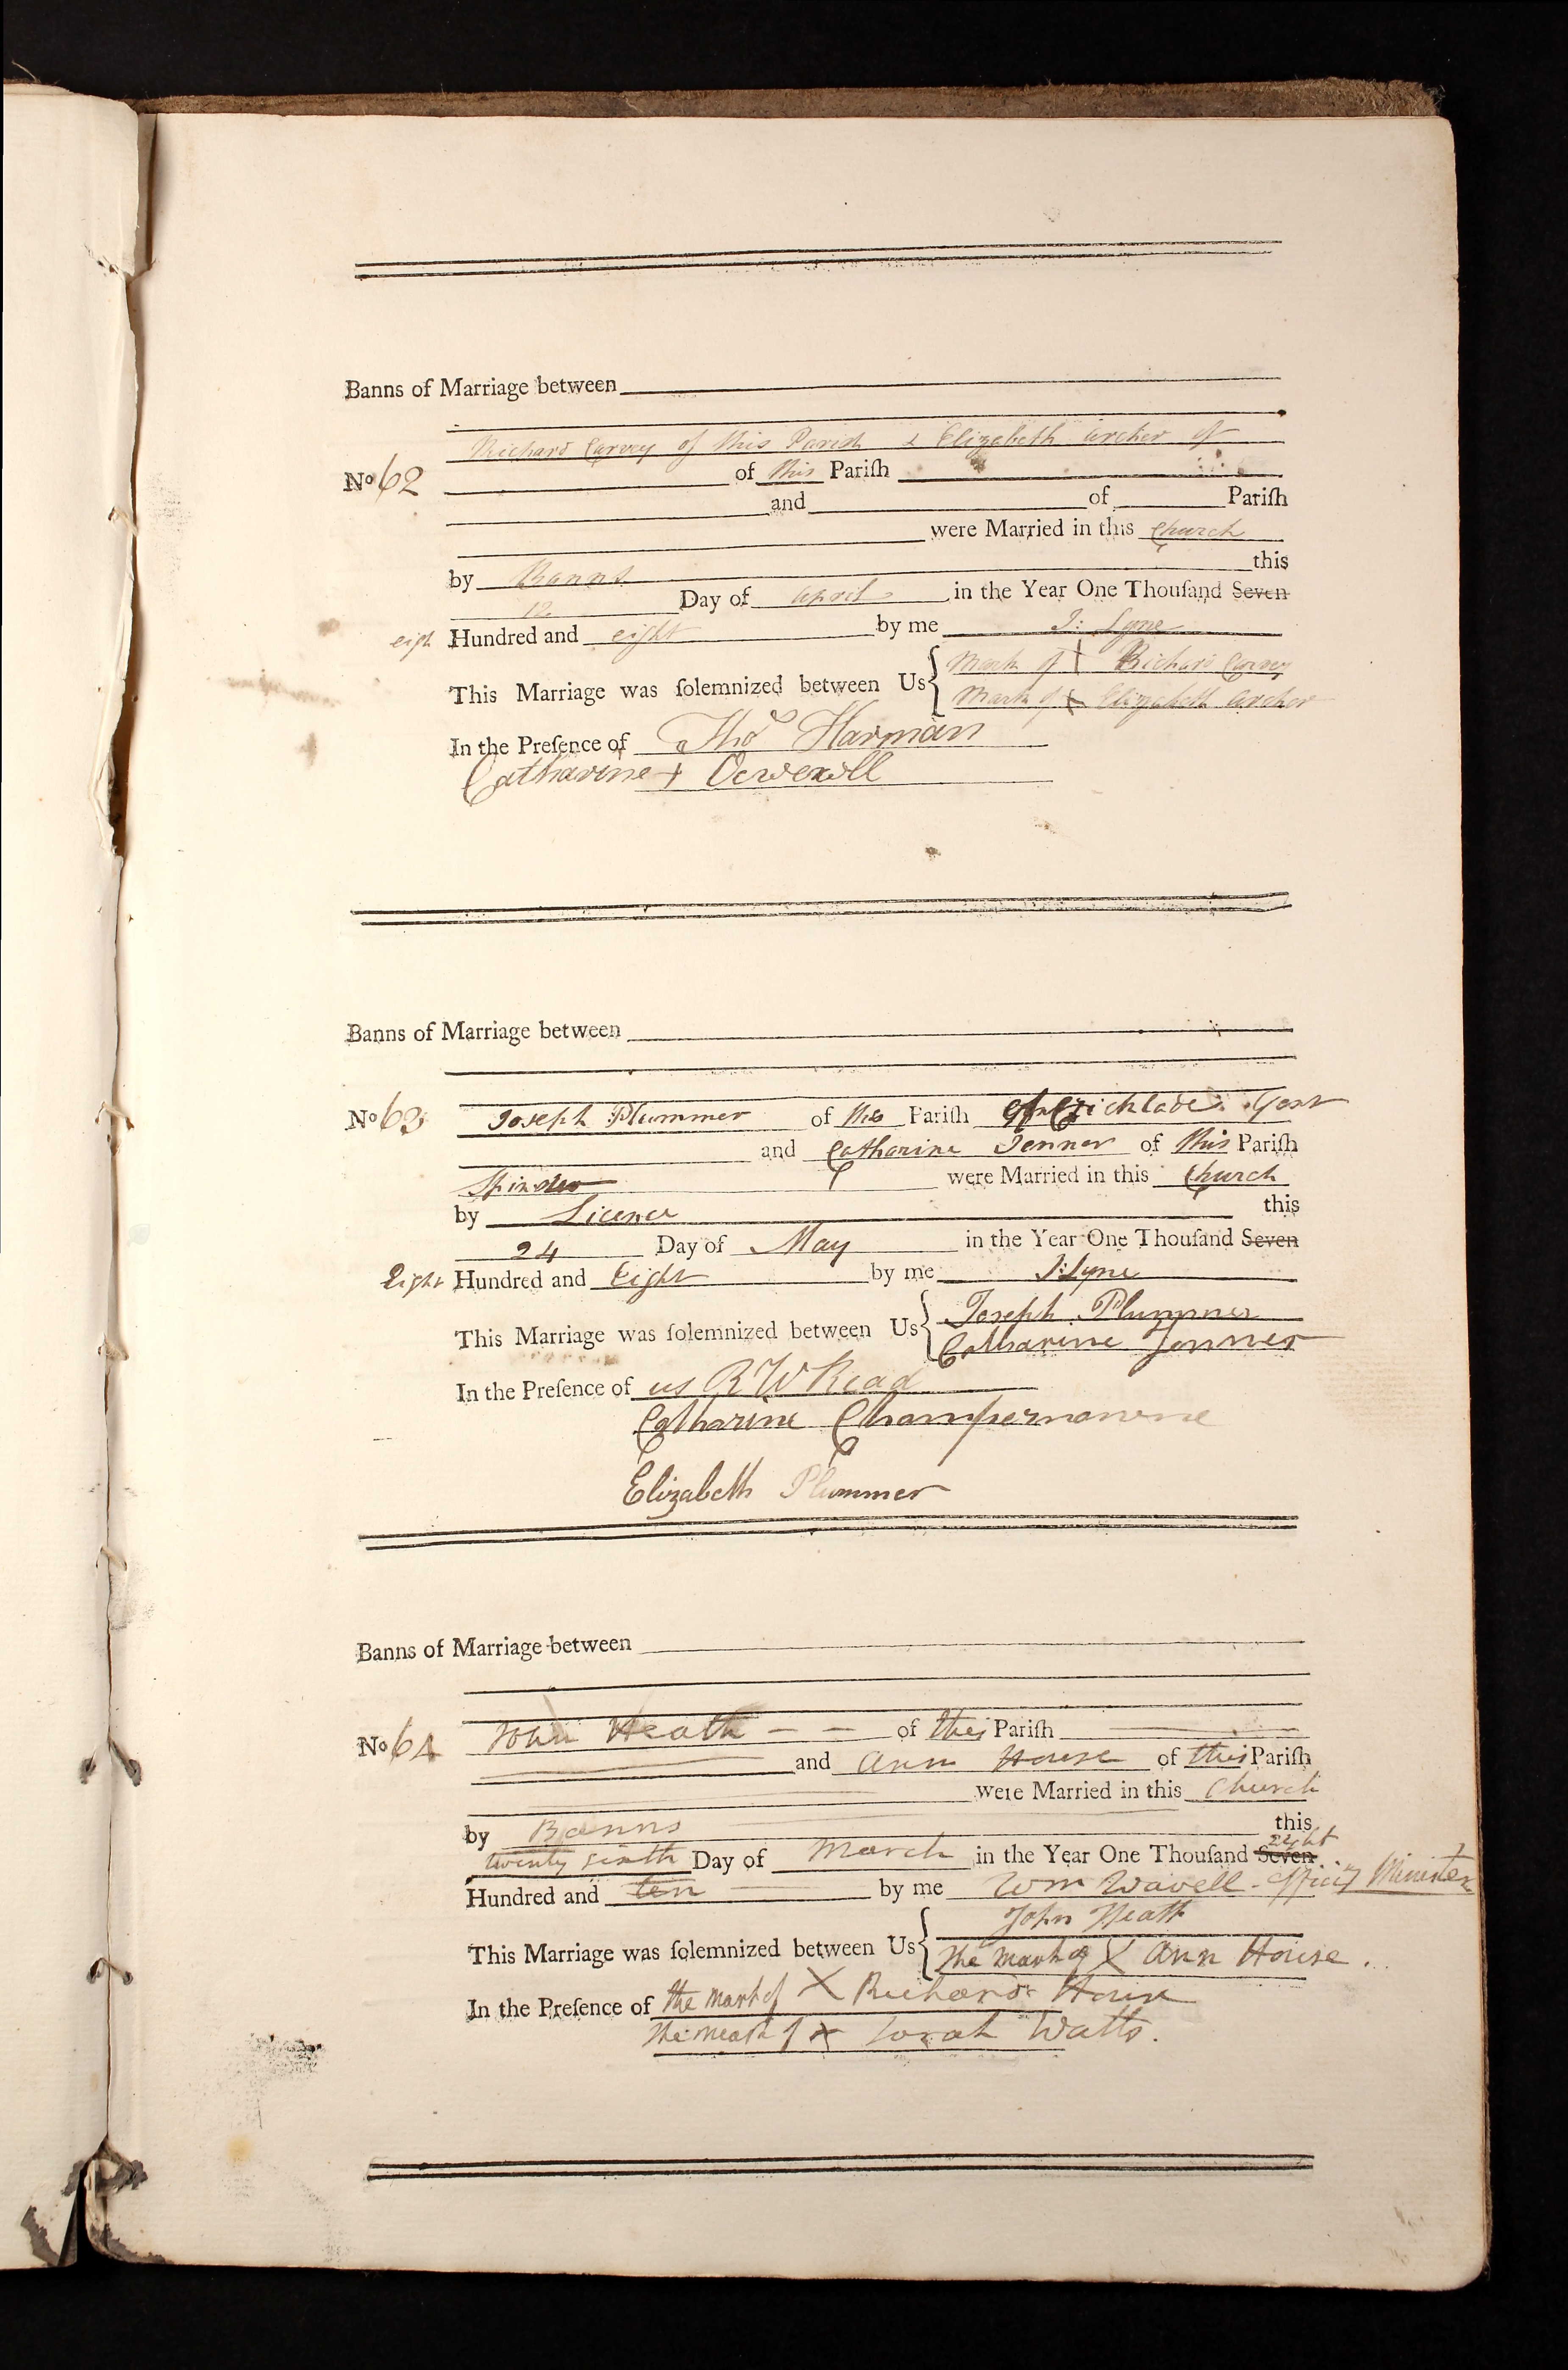 Banns of Marriage between
Richard Carvey of this Parish & Elizabeth Archer of
No 62 of this Pariſh
and of Pariſh
were Married in this Church
by Banns this
12 Day of April in the Year One Thouſand Seven
eigh Hundred and eight by me J: Lyne
This Marriage was ſolemnized between Us { Mark of + Richard Carvey
Mark of + Elizabeth Archer
In the Preſence of Thos Harman
Catharine +
Banns of Marriage between
No 63 Joseph Plummer of the Pariſh of Cricklade Gent
and Catharine Jenner of this Pariſh
Spinster were Married in this Church
by Licence this
24 Day of May in the Year One Thouſand Seven
Eight Hundred and Eight by me J: Lyne
This Marriage was ſolemnized between Us { Joseph Plummer
Catharine Jenner
In the Preſence of us R W Read
Catharine Champernowne
Elizabeth Plummer
Banns of Marriage between
No 64 John Heath of this Pariſh
and Ann House of this Pariſh
were Married in this Church
by Banns this
twenty sixth Day of March in the Year One Thouſand Seven eight
Hundred and ten by me Wm Wavell Minister
This Marriage was ſolemnized between Us { John Heath
The mark of X Ann House.
In the Preſence of the mark of X Richard House
The mark of X Sarah Watts.